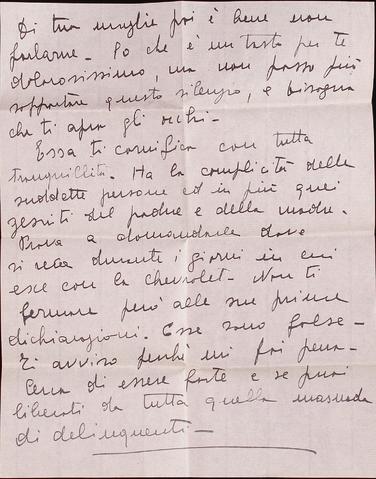 Di tua moglie poi è bene non
parlarne. So che è un tasto per te
dolorosissimo, ma non posso più
sopportare questo silenzio, e bisogna
che ti apra gli occhi -
Essa ti cornifica con tutta
tranquillità. Ha la complicità delle
suddette persone ed in più quei
del padre e della madre.
Prova a domandarle dove
si reca durante i giorni in cui
esce con la Chevrolet - Non ti
fermare però alle sue prime
dichiarazioni. Esse sono false -
Ti avviso perché mi fai pena -
Cerca di essere forte e se puoi
liberati da tutta quella masnada
di delinquenti -